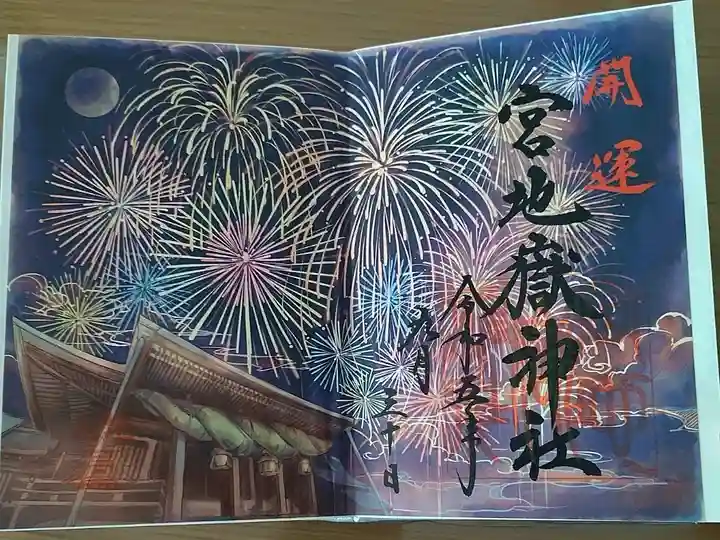 開運
宮地嶽神社
令和五年
九月三十日